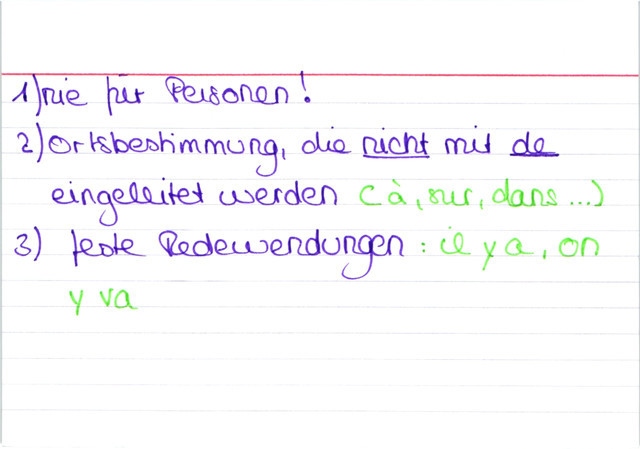 1) nie für Personen!
2) Ortsbestimmung, die nicht mit de
eingeleitet werden (à, sur, dans ...)
3) feste Redewendungen : il y a, on
y va